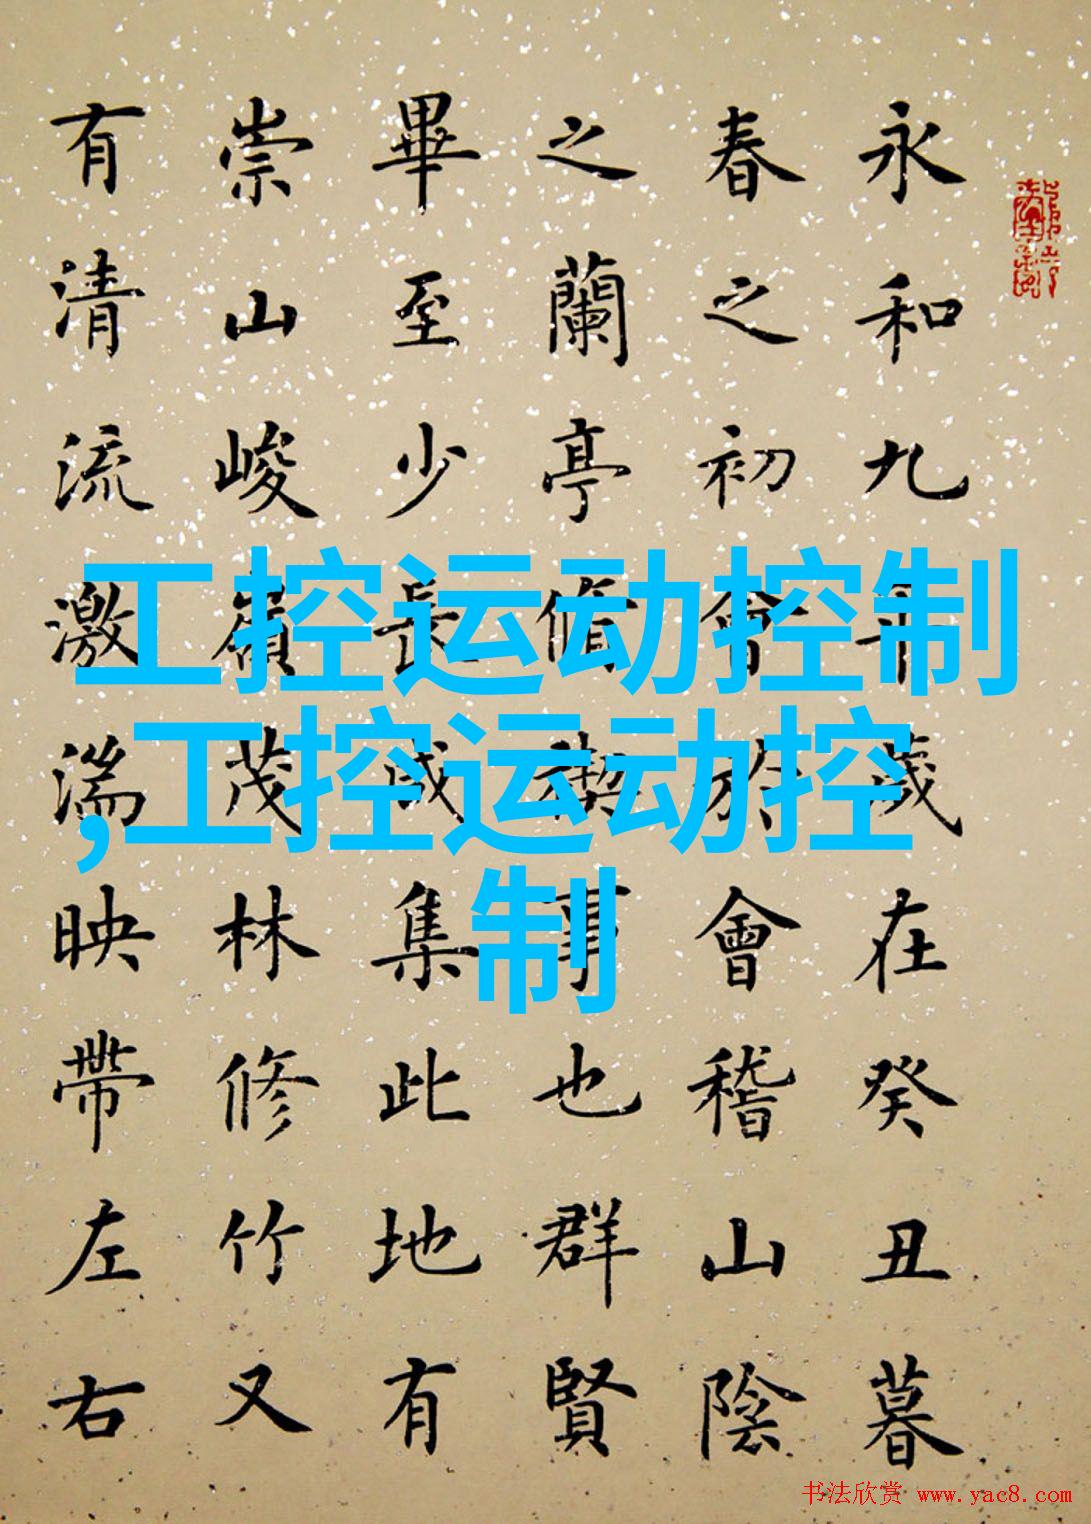 永和九年歲在癸丑暮
春之初會於會稽山陰
之蘭亭脩禊事也群賢
畢至少長咸集此地有
崇山峻嶺茂林修竹又
有清流激湍映帶左右
工控运动控制
,工控运动控
制
书法欣赏 www.yac8.com